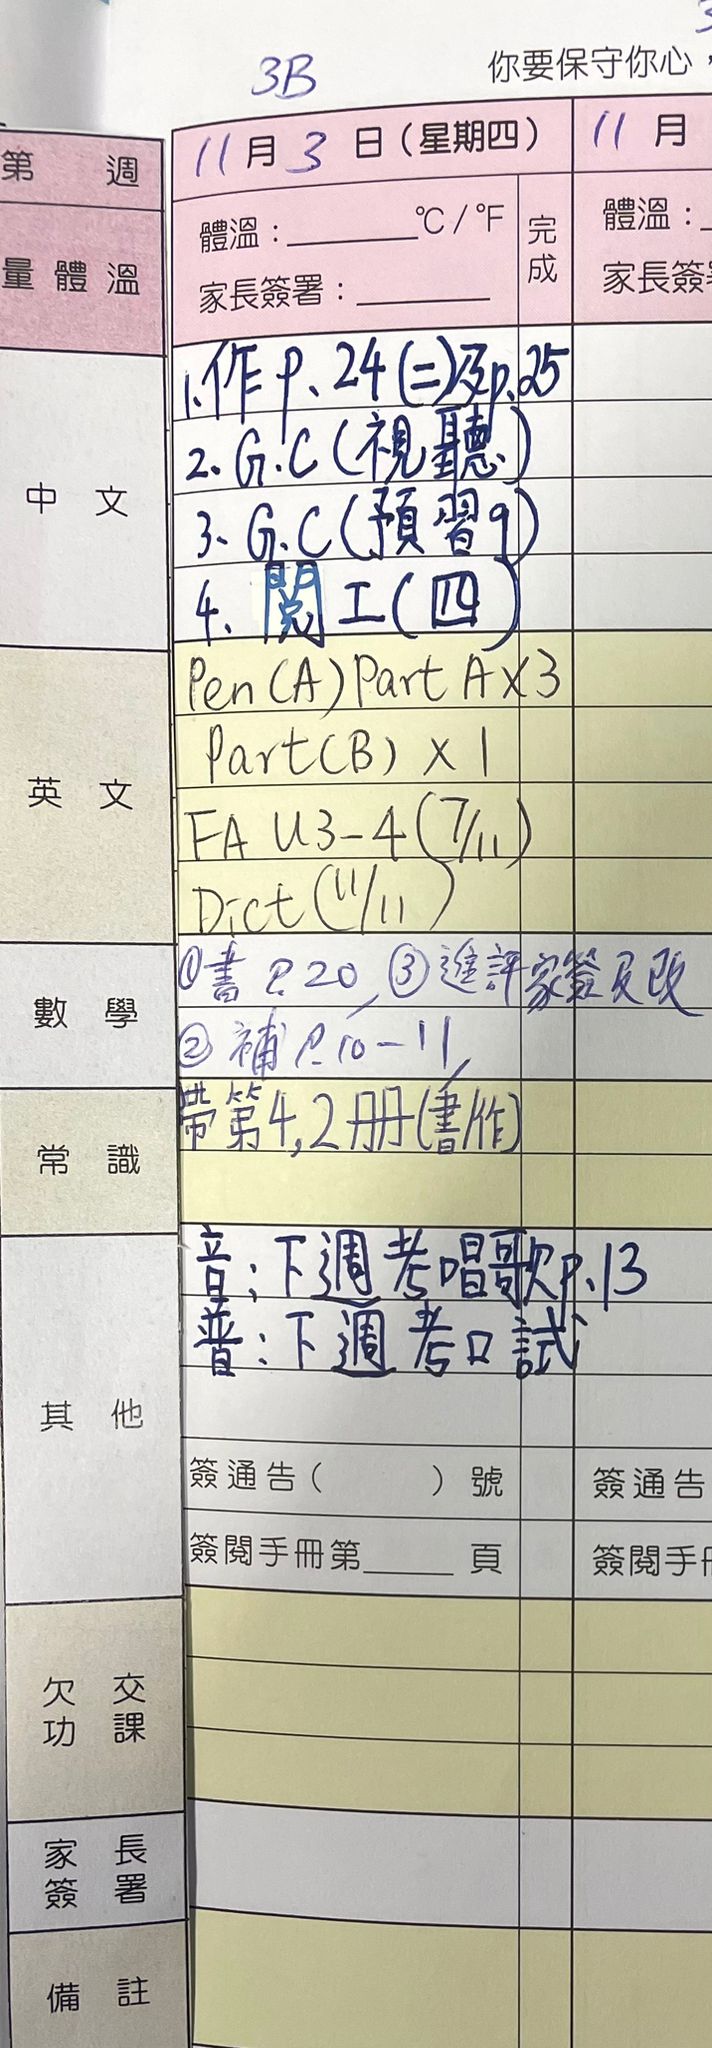 3B
你要保守你心，
第 週
11月3日（星期四）
11月
量體溫
體溫：______℃/℉
完成
體溫：
家長簽署：______
家長簽
中文
1.作p.24(二)及p.25
2.G.C(視聽)
3.G.C(預習9)
4.閱工(四)
英文
Pen(A)Part A×3
Part(B)×1
FA U3-4(7/11)
Dict(11/11)
數學
①書P.20,③進評家簽及改
②補P.10-11,
常識
帶第4,2冊(書/作)
其他
音:下週考唱歌p.13
普:下週考口試
簽通告（ ）號
簽通告
簽閱手冊第____頁
簽閱手
欠交功課
家長簽署
備註